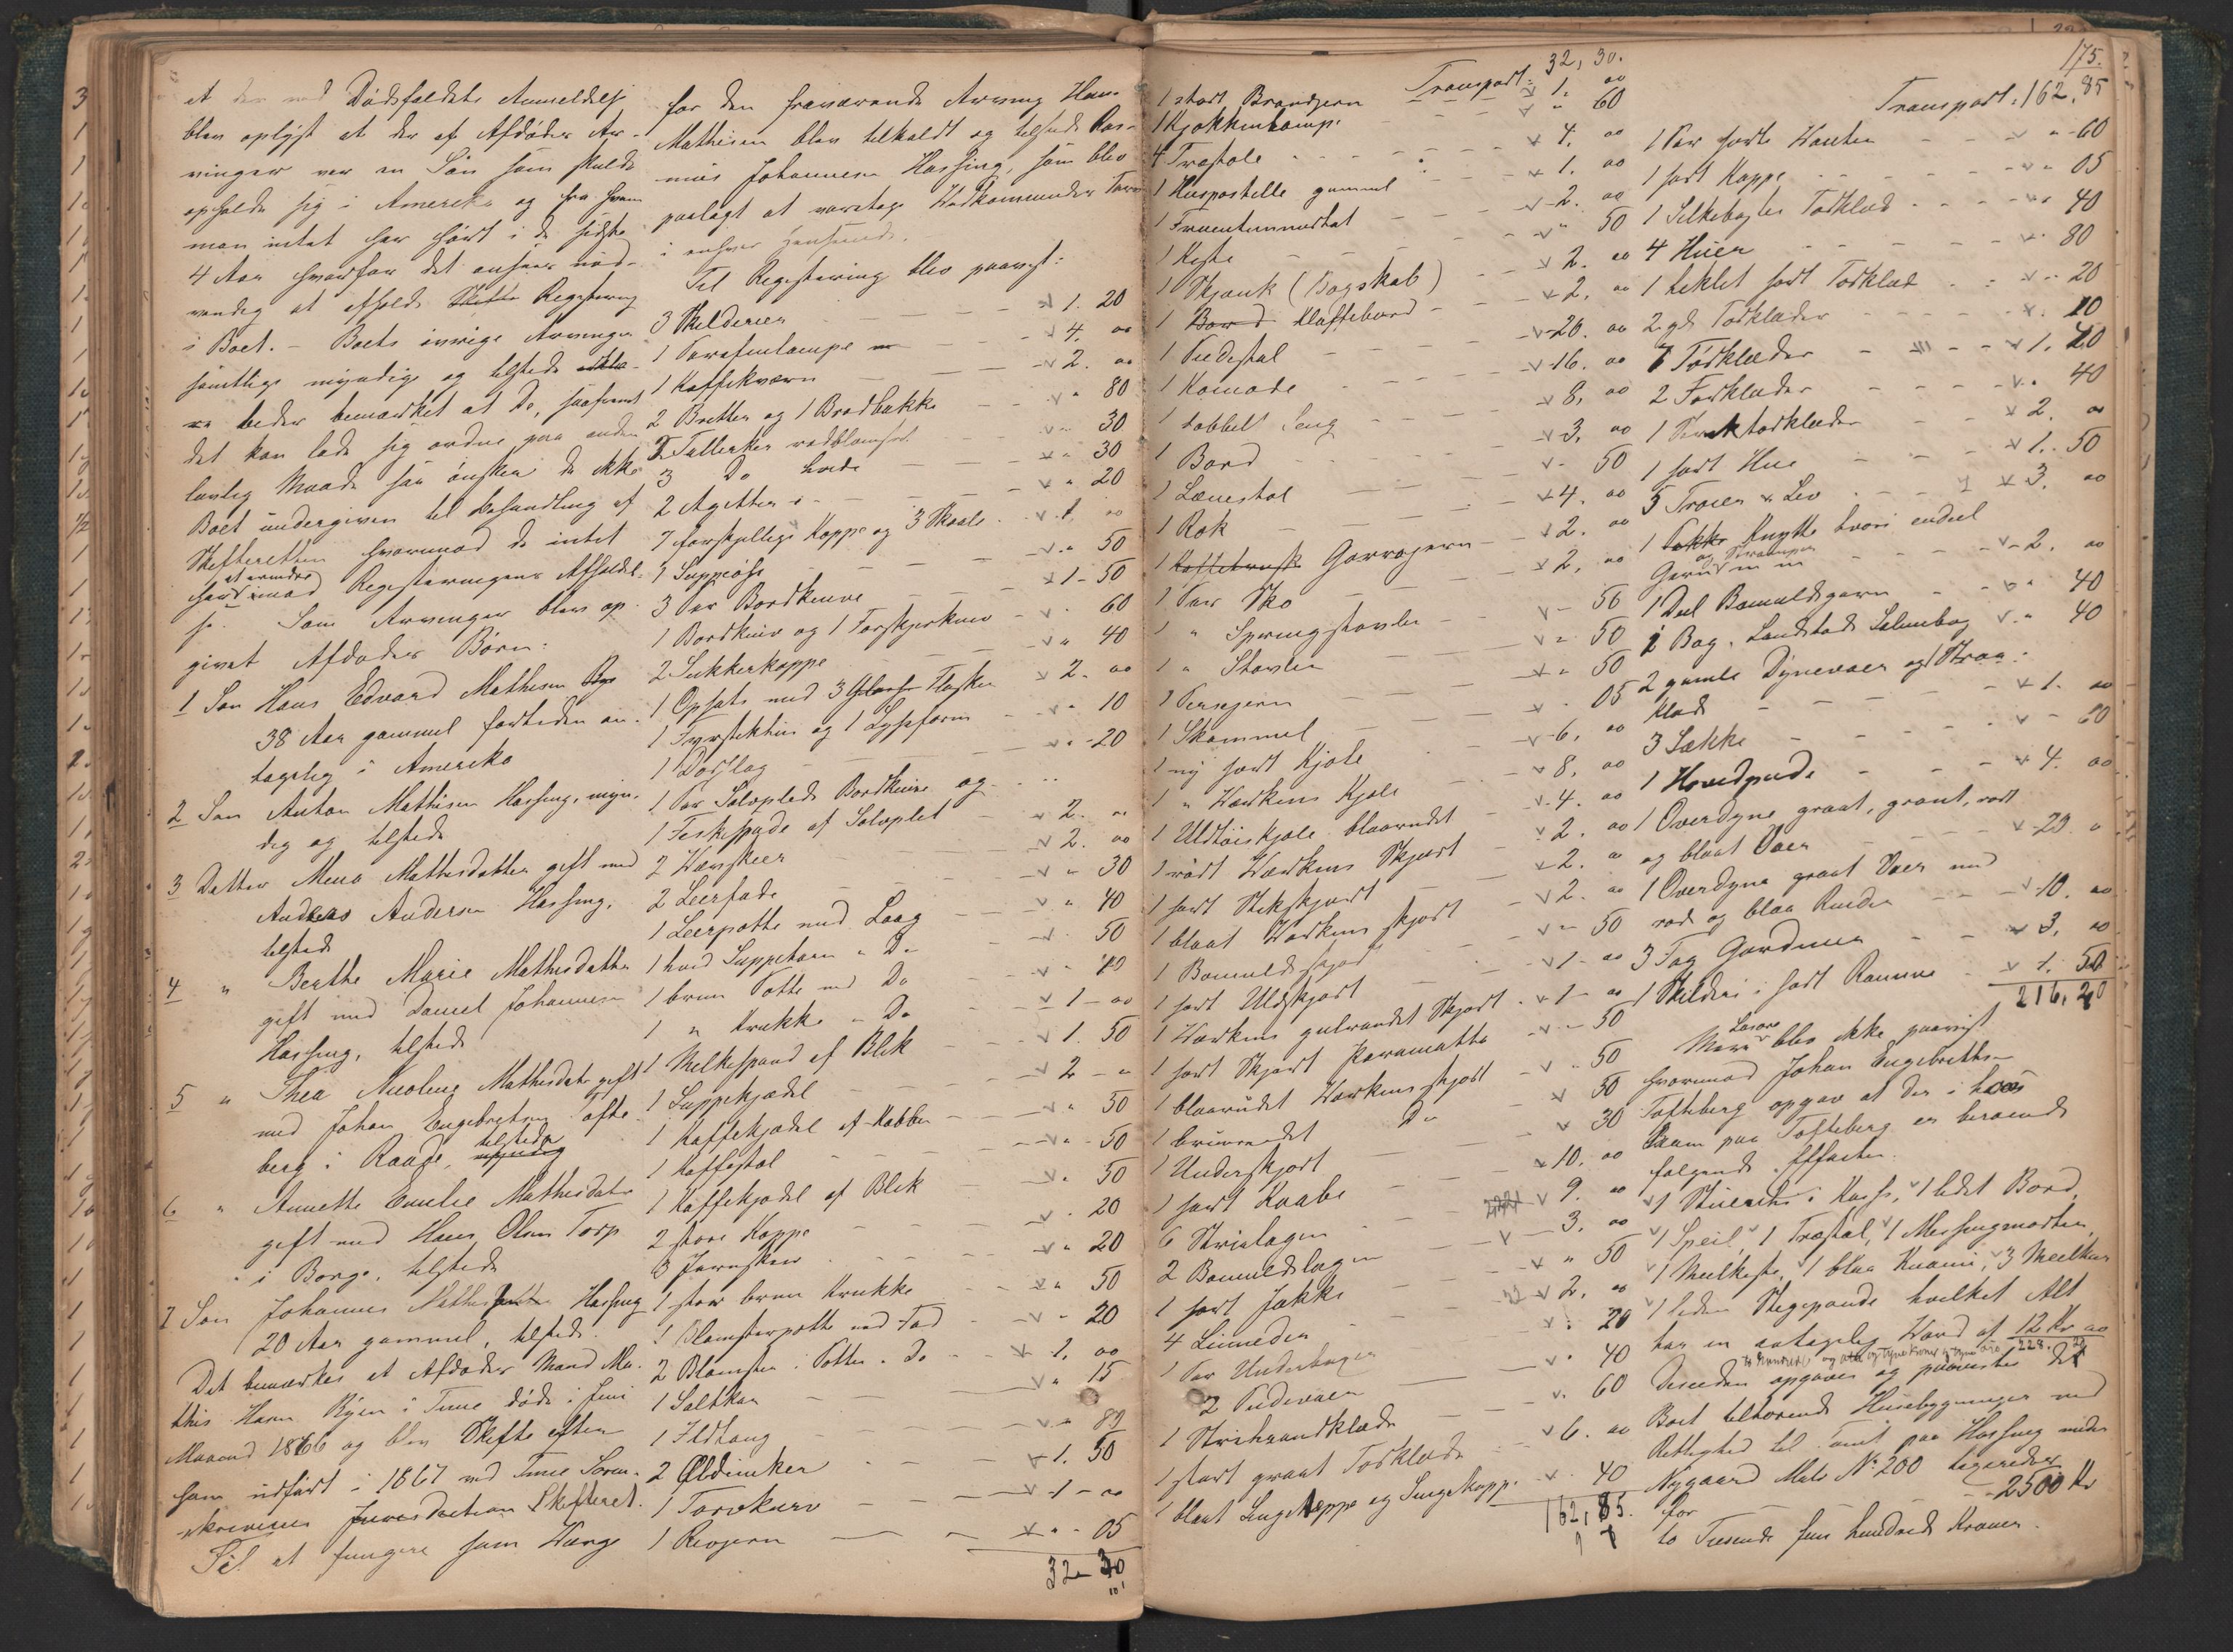 at der ved Dødsfaldets Anmeldelse
blev oplyst at der af Afdødes Ar-
vinger var en Søn som skulde
opholde sig i Amerika og fra hvem
man intet har hørt i de sidste
4 Aar hvorfor det ansees nød-
vendig at afholde Skifte Registering
i Boet. - Boets øvrige Arvinger
samtlige myndige og tilstede
beder bemærket at de, saafremt
det kan lade sig ordne paa anden
lovlig Maade saa ønsker de ikke
Boet undergiven til Behandling af
Skifteretten hvorimod de intet
har at erindre imod Registeringens Afholdel-
se. Som Arvinger blev op-
givet Afdødes Børn:
1 Søn Hans Edvard Mathisen
38 Aar gammel fortiden an-
tagelig i Amerika
2 Søn Anton Mathisen Hassing, myn-
dig og tilstede
3 Datter Mina Mathisdatter gift med
Andreas Andersen Hassing,
tilstede
4 " Berthe Marie Mathisdatter
gift med Daniel Johannesen
Hassing, tilstede
5 " Thea Nicoline Mathisdatr gift
med Johan Engebretsen Tofte-
berg i Raade, tilstede
6 " Annette Emilie Mathisdatr
gift med Hans Olsen Torp
i Borge, tilstede
7 Søn Johannes Mathisen Hassing
20 Aar gammel, tilstede.
Det bemærkes at Afdødes Mand Ma-
this Hansen i Tune døde i Juni
Maaned 1866 og blev Skifte efter
ham udført i 1867 ved Tune Soren-
skriveries Jurisdiction Skifteret.
Til at fungere som Værge
for den fraværende Arving Hans
Mathisen blev tilkaldt og tilstede Ras-
mus Johannesen Hassing, som blev
paalagt at varetage Vedkommendes Tarv
i enhver Henseende.
Til Registering blev paavist:
3 Skilderier - 1. 20
1 Parafinlampe - 4. 00
1 Kaffekværn - 2. 00
2 Bretter og 1 Brødbakke - " 80
2 Tallerker rødblomstret - " 30
3 Do hvide - " 30
2 Asjetter - " 20
7 forskjellige Koppe og 3 Skaale - 1. 00
1 Suppeøse - " 50
3 Par Bordknive - 1 - 50
1 Bordkniv og 1 Forskjærkniv - " 60
2 Sukkerkoppe - " 40
1 Opsats med 3 Flasker - 2. 00
1 Fyrstikktin og 1 Lysseform - " 10
1 Dørslag - " 20
1 Par Sølvplede Bordknive og
1 Fiskespade af Sølvplet - 2. "
2 Vandskeer - 2. 00
2 Leerfade - " 30
1 Leerpotte med Laag - " 40
1 hvid Suppeterin " Do - " 50
1 brun Potte med Do - " 40
1 " Krukke " Do - 1 - 00
1 Melkespand af Blik - 1. 50
1 Suppekjedel - 2 - "
1 Kaffekjedel af Kobber - " 50
1 Kaffestol - " 50
1 Kaffekjedel af Blik - " 50
2 store Koppe - " 20
3 Jernskeer - " 20
1 stor brun Krukke - " 50
1 Blomsterpotte med Fad - " 20
2 Blomster i Potter " Do - 1. 00
1 Saltkar - " 15
1 Ildtang - " 80
2 Ølldunker - 1. 50
1 Torvkurv - 1 - 00
1 Rivjern - " 05
32 - 30
175.
Transport: 32, 30.
1 stort Brandjern - 1. 00
1 Kjøkkenlampe - " 60
4 Træstole - 4. 00
1 Huspostille gammel - 1. 00
1 Fruentimmerhat - 2. 00
1 Kiste - " 50
1 Skjænk (Bogskab) - 2. 00
1 Bord Klaffebord - 2. 00
1 Piedestal - 20. 00
1 Komode - 16. 00
1 dobbelt Seng - 8. 00
1 Bord - 3. 00
1 Lænestol - " 50
1 Rok - 4. 00
1 Gorrojern - 2. 00
1 Par Sko - 2. 00
1 " Springstøvler - " 50
1 " Støvler - " 50
1 Persejern - " 50
1 Skammel - " 05
1 ny sort Kjole - 6. 00
1 " Værkens Kjole - 8. 00
1 Uldtøiskjole blaarudet - 4. 00
1 rødt Værkens Skjørt - 2. 00
1 sort Stikskjørt - 2. "
1 blaat Værkens Skjørt - 2. 00
1 Bomuldsskjørt - " 50
1 sort Uldskjørt - 1 - 00
1 Værkens gulrandet Skjørt - 1 - 00
1 sort Skjørt Paramatta - " 50
1 blaarudet Værkensskjørt - " 50
1 brunrandet Do - " 50
1 Underskjørt - " 30
1 sort Kaabe - 10. 00
6 Strielagen - 9. 00
2 Bomuldslagen - 3. 00
1 sort Jakke - " 50
4 Linneder - 2. 00
1 Par Underbuxer - " 20
2 Pudevaar - " 40
1 Striehaandklæde - " 60
1 stort graat Tørklæde - 6. 00
1 blaat Sengeteppe og Sengekappe - " 40
162, 85.
Transport: 162, 85
1 Par sorte Vanter - " 60
1 sort Kappe - " 05
1 Silkebagtes Tørklæd - " 40
4 Huer - " 80
1 heklet sort Tørklæd - " 20
2 gl. Tørklæder - " 10
7 Tørklæder - 1. 40
2 Forklæder - " 40
1 tørklæder - 2. 00
1 sort Hue - 1. 50
5 Trøier & Liv - 3. 00
1 Knytte hvori endeel
Garn og Strømper m m - 2. 00
1 Deel Bomuldsgarn - " 40
1 Bog. Landstads Salmebog - " 40
2 gamle Dynevaer og 1 Straa-
klæde - 1. 00
3 Sække - " 60
1 Hovedpude - 4. 00
1 Overdyne graat, grønt, rødt
og blaat Vaer - 20. "
1 Overdyne graat Vaer med
røde og blaa Render - 10. 00
3 Fag Gardiner - 3. 00
1 Skilderi i sort Ramme - 1. 50
216, 20
Mere Løsøre blev ikke paavist
hvorimod Johan Engebrethsen
Tofteberg opgav at der i hans
Raum paa Tofteberg er beroende
følgende Effecter.
1 Stueuhr i Kasse, 1 lidet Bord,
1 Speil, 1 Træstol, 1 Messingmorter,
1 Melkiste, 1 blaa Kanne, 3 Melkker
1 liden Stegepande hvilket Alt
har en antagelig Værd af 12 Kr 00
to Hundrede og otte og tyve Kroner og tyve Øre 228. 20
Desuden opgaves og paavistes det
Boet tilhørende Huusbygninger med
Rettighed til Tomt paa Hassing under
Nygaard Matr No 200 taxeredes
for - 2500 Kr
to Tusende fem hundrede Kroner.